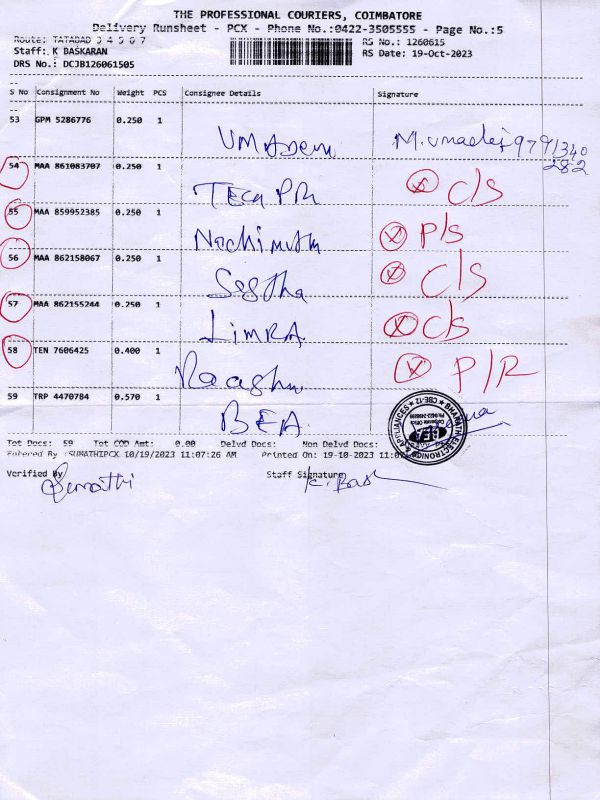 THE PROFESSIONAL COURIERS, COIMBATORE
Delivery Runsheet - PCX - Phone No.:0422-3505555 - Page No.:5
Route: TATABAD 3 4 5 6 7
RS No.: 1260615
Staff: K BASKARAN
RS Date: 19-Oct-2023
DRS No.: DCJB126061505
S No Consignment No Weight PCS Consignee Details Signature
53 GPM 5286776 0.250 1
M. Umadevi 9791340
282
54 MAA 861083707 0.250 1
TECH PR C/S
55 MAA 859952385 0.250 1
Nachimuth P/S
56 MAA 862158067 0.250 1
C/S
57 MAA 862155244 0.250 1
LIMRA C/S
58 TEN 7606425 0.400 1
P/R
59 TRP 4470784 0.570 1
BEA
BHARATH ELECTRONICS APPLIANCES
CBE-12
Tot Docs: 59 Tot COD Amt: 0.00 Delvd Docs: Non Delvd Docs:
Entered By :SUMATHIPCX 10/19/2023 11:07:26 AM Printed On: 19-10-2023
Verified By
Staff Signature
Sumathi
K. Bask